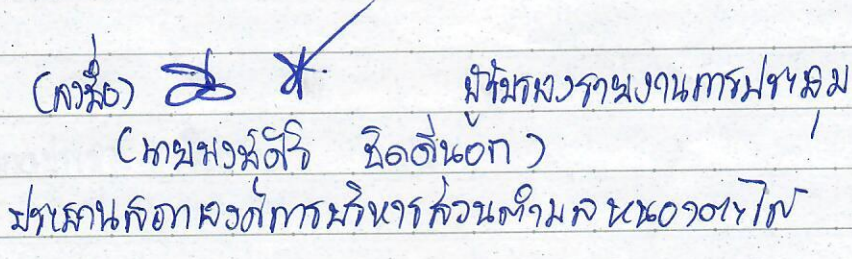 (ลงชื่อ) ผู้รับรองรายงานการประชุม
(นาย
ประธานสภาองค์การบริหารส่วนตำบลหนองตะไก้